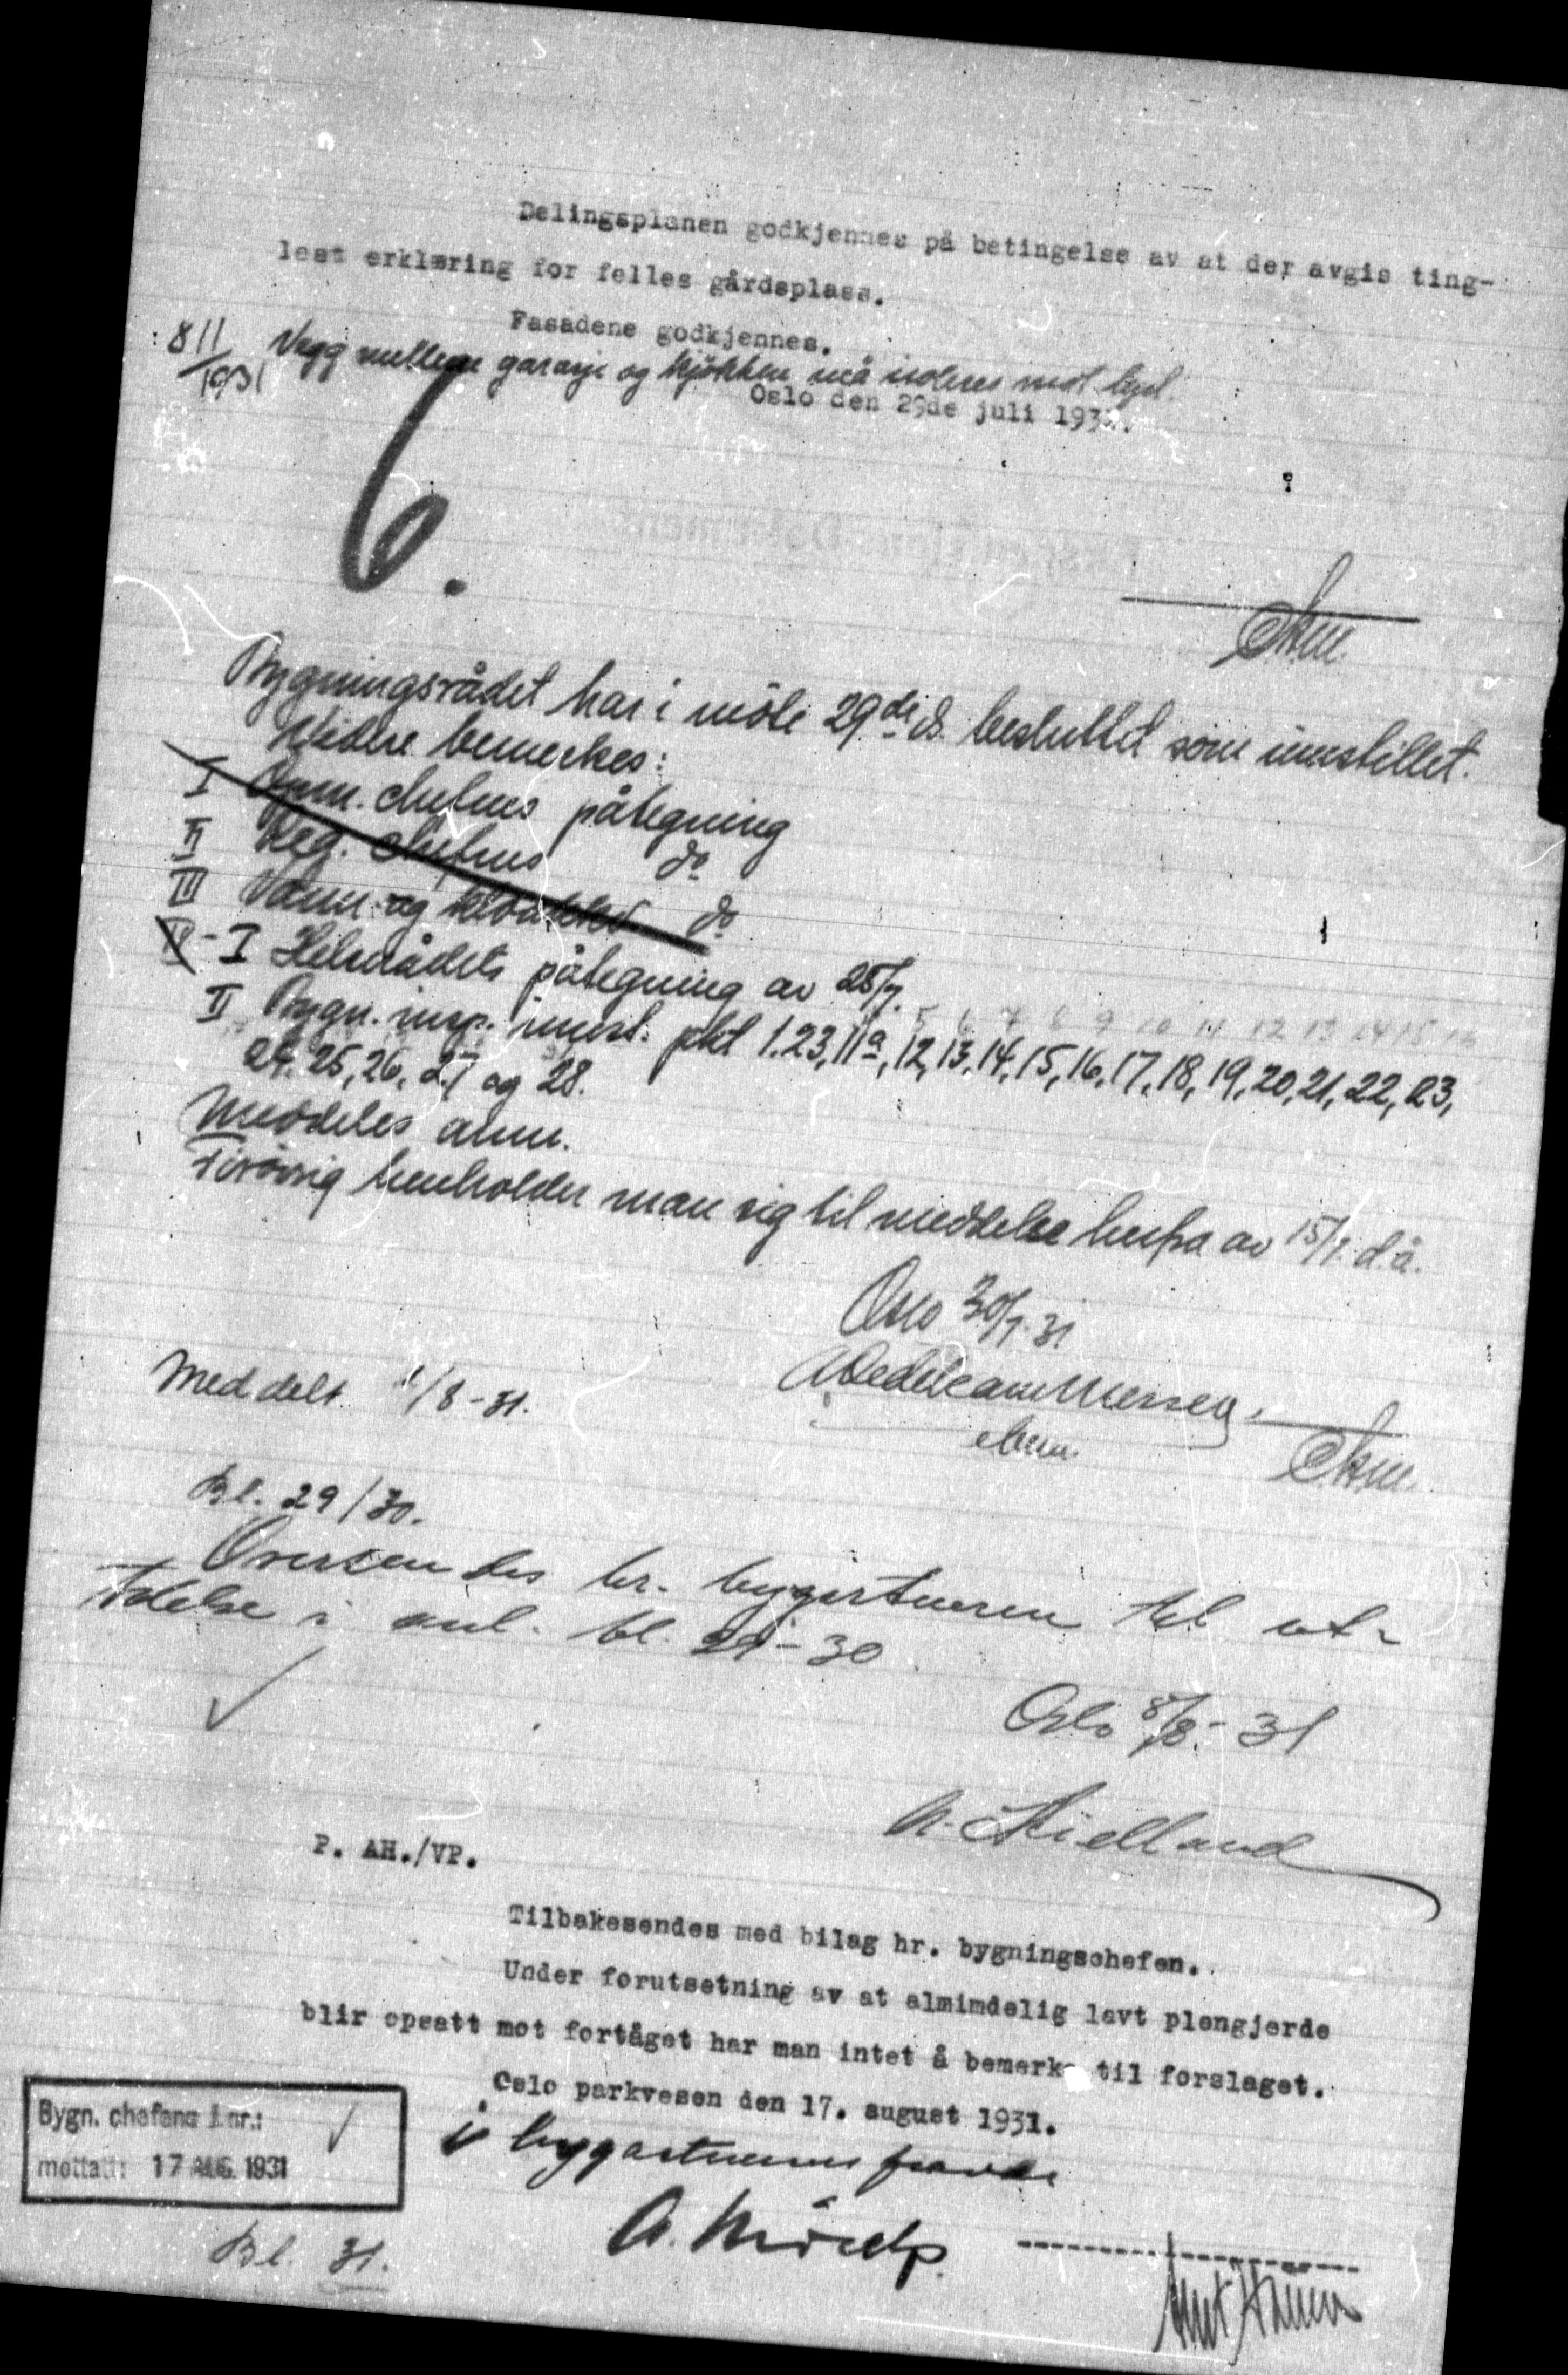 Delingsplanen godkjennes på betingelse av at der avgis ting-
lest erklæring for felles gårdsplass.
Fasadene godkjennes.
811/1931 Vegg mellem garasje og kjökken må isoleres mot lyd.
Oslo den 29de juli 1931.
6.
Bygningsrådet har i möte 29de ds. besluttet som innstillet.
Videre bemerkes:
I chefens påtegning
II Reg. chefens do
III Vann og kloakk do
IV - I Helserådets påtegning av 25/7.
5 6 7 8 9 10 11 12 13 14 15 16
II Bygn. insp. innst. pkt 1.23, 11a, 12, 13, 14, 15, 16, 17, 18, 19, 20, 21, 22, 23,
24, 25, 26, 27 og 28.
Meddeles anm.
Forövrig henholder man sig til meddelelse herfra av 15/7. d.å.
Oslo 30/7.31
Meddelt /8-31.
Bl. 29/30.
Oversendes hr. bygartneren til ut-
talelse i anl. bl. 29-30
Oslo 8/8.-31
A. Kielland
P. AH./VP.
Tilbakesendes med bilag hr. bygningschefen.
Under forutsetning av at almimdelig lavt plengjerde
blir opsatt mot fortåget har man intet å bemerke til forslaget.
Oslo parkvesen den 17. august 1931.
i bygartnerens fravær
Bygn. chefens j.nr.:
mottatt: 17 AUG. 1931
Bl. 31.